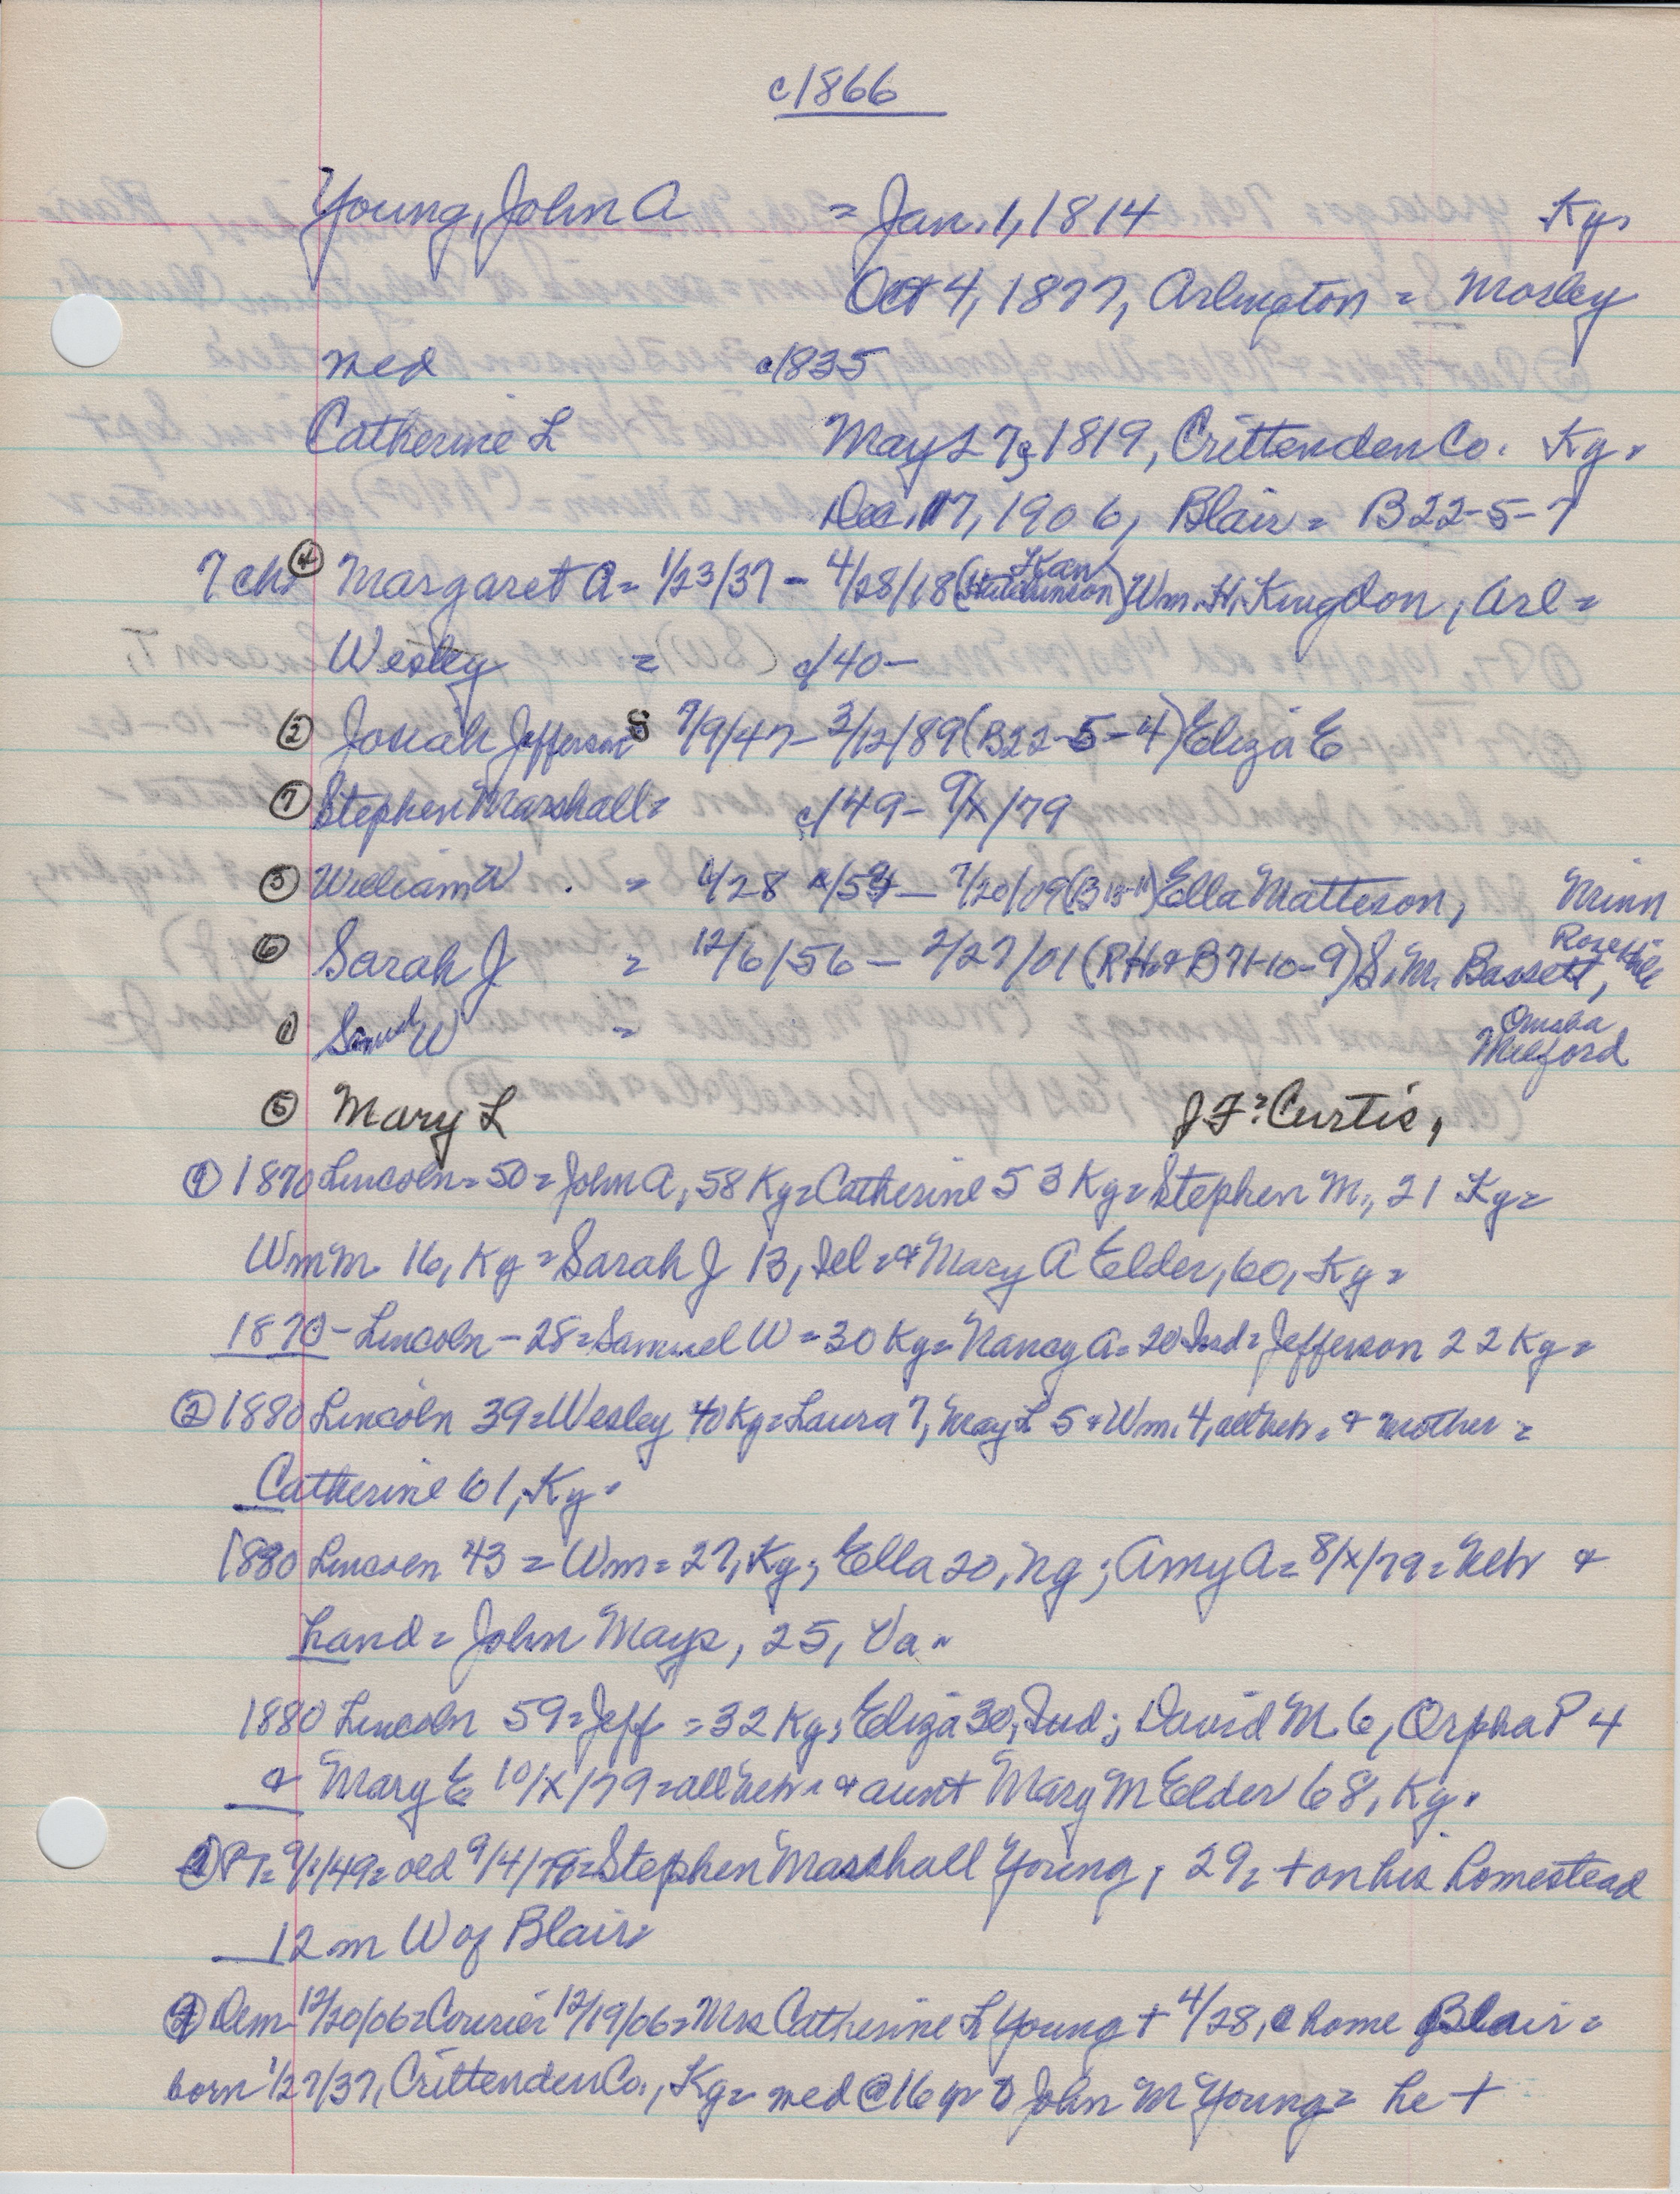 c1866
Young, John A = Jan. 1, 1814 Ky.
Oct 4, 1877, Arlington = Mosley
med c1835
Catherine L May 27, 1819, Crittenden Co. Ky.
Dec. 17, 1906, Blair = B22-5-7
7 ch. ④ Margaret A = 1/23/37 - 4/28/18 (Hutchinson Kan) Wm. H. Kingdon, Arl =
Wesley = c/40 -
② Josiah Jefferson 7/9/47 - 3/12/89 (B22-5-4) Eliza E
⑦ Stephen Marshall = c/49 - 9/x/79
③ William W. = 4/28 - 7/20/09 (B13-11) Ella Matteson, Minn
⑥ Sarah J = 12/6/56 - 2/27/01 (RH & B71-10-9) S. M. Bassett,
① Samuel W = Omaha Milford
⑤ Mary L J F = Curtis,
① 1870 Lincoln = 50 = John A, 58 Ky = Catherine 53 Ky = Stephen M., 21 Ky =
Wm M. 16, Ky = Sarah J 13, Ill = & Mary A Elder, 60, Ky =
1870 - Lincoln - 28 = Samuel W = 30 Ky = Nancy A = 20 Ind = Jefferson 22 Ky =
② 1880 Lincoln 39 = Wesley 40 Ky = Laura 7, May L 5 & Wm. 4, all neb = & mother =
Catherine 61, Ky.
1880 Lincoln 43 = Wm = 27, Ky; Ella 20, ; Amy A = 8/x/79 = Neb &
hand = John Mays, 25, Va.
1880 Lincoln 59 = Jeff = 32 Ky; Eliza 30, Ind; David M 6, Orpha P 4
& Mary E 10/x/79 = all neb & aunt Mary M Elder 68, Ky.
PT = old 9/4/79 = Stephen Marshall Young, 29 = + on his homestead
12 m W of Blair
Dem 12/20/06 = Courier 12/19/06 = Mrs Catherine L Young + 4/28, @ home Blair =
born 1/27/37, Crittenden Co., Ky = med @ 16 yr to John M Young = he +